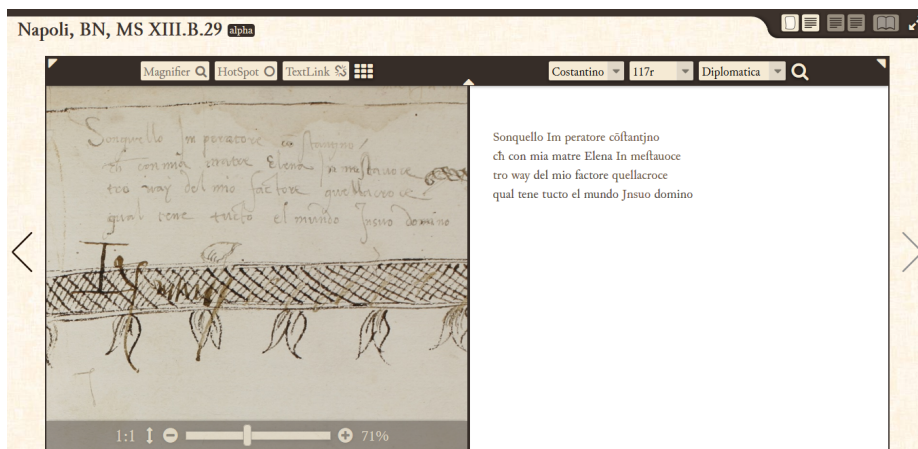 Napoli, BN, MS XIII.B.29 alpha
Magnifier HotSpot TextLink
Costantino 117r Diplomatica
Sonquello Im peratore cō stantjno
cħ con mia matre Elena In mestauoce
tro way del mio factore quellacroce
qual tene tucto el mūndo Jnsuo domino
1:1 71%
Sonquello Im peratore cōſtantjno
cħ con mia matre Elena In meſtauoce
tro way del mio factore quellacroce
qual tene tucto el mundo Jnsuo domino